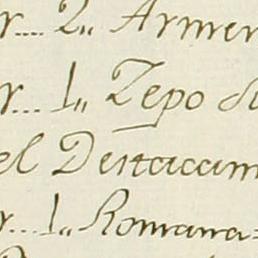 r.... 2,, Armer
r... 1,, Zepo d
el Destacam
r... 1,, Romana=